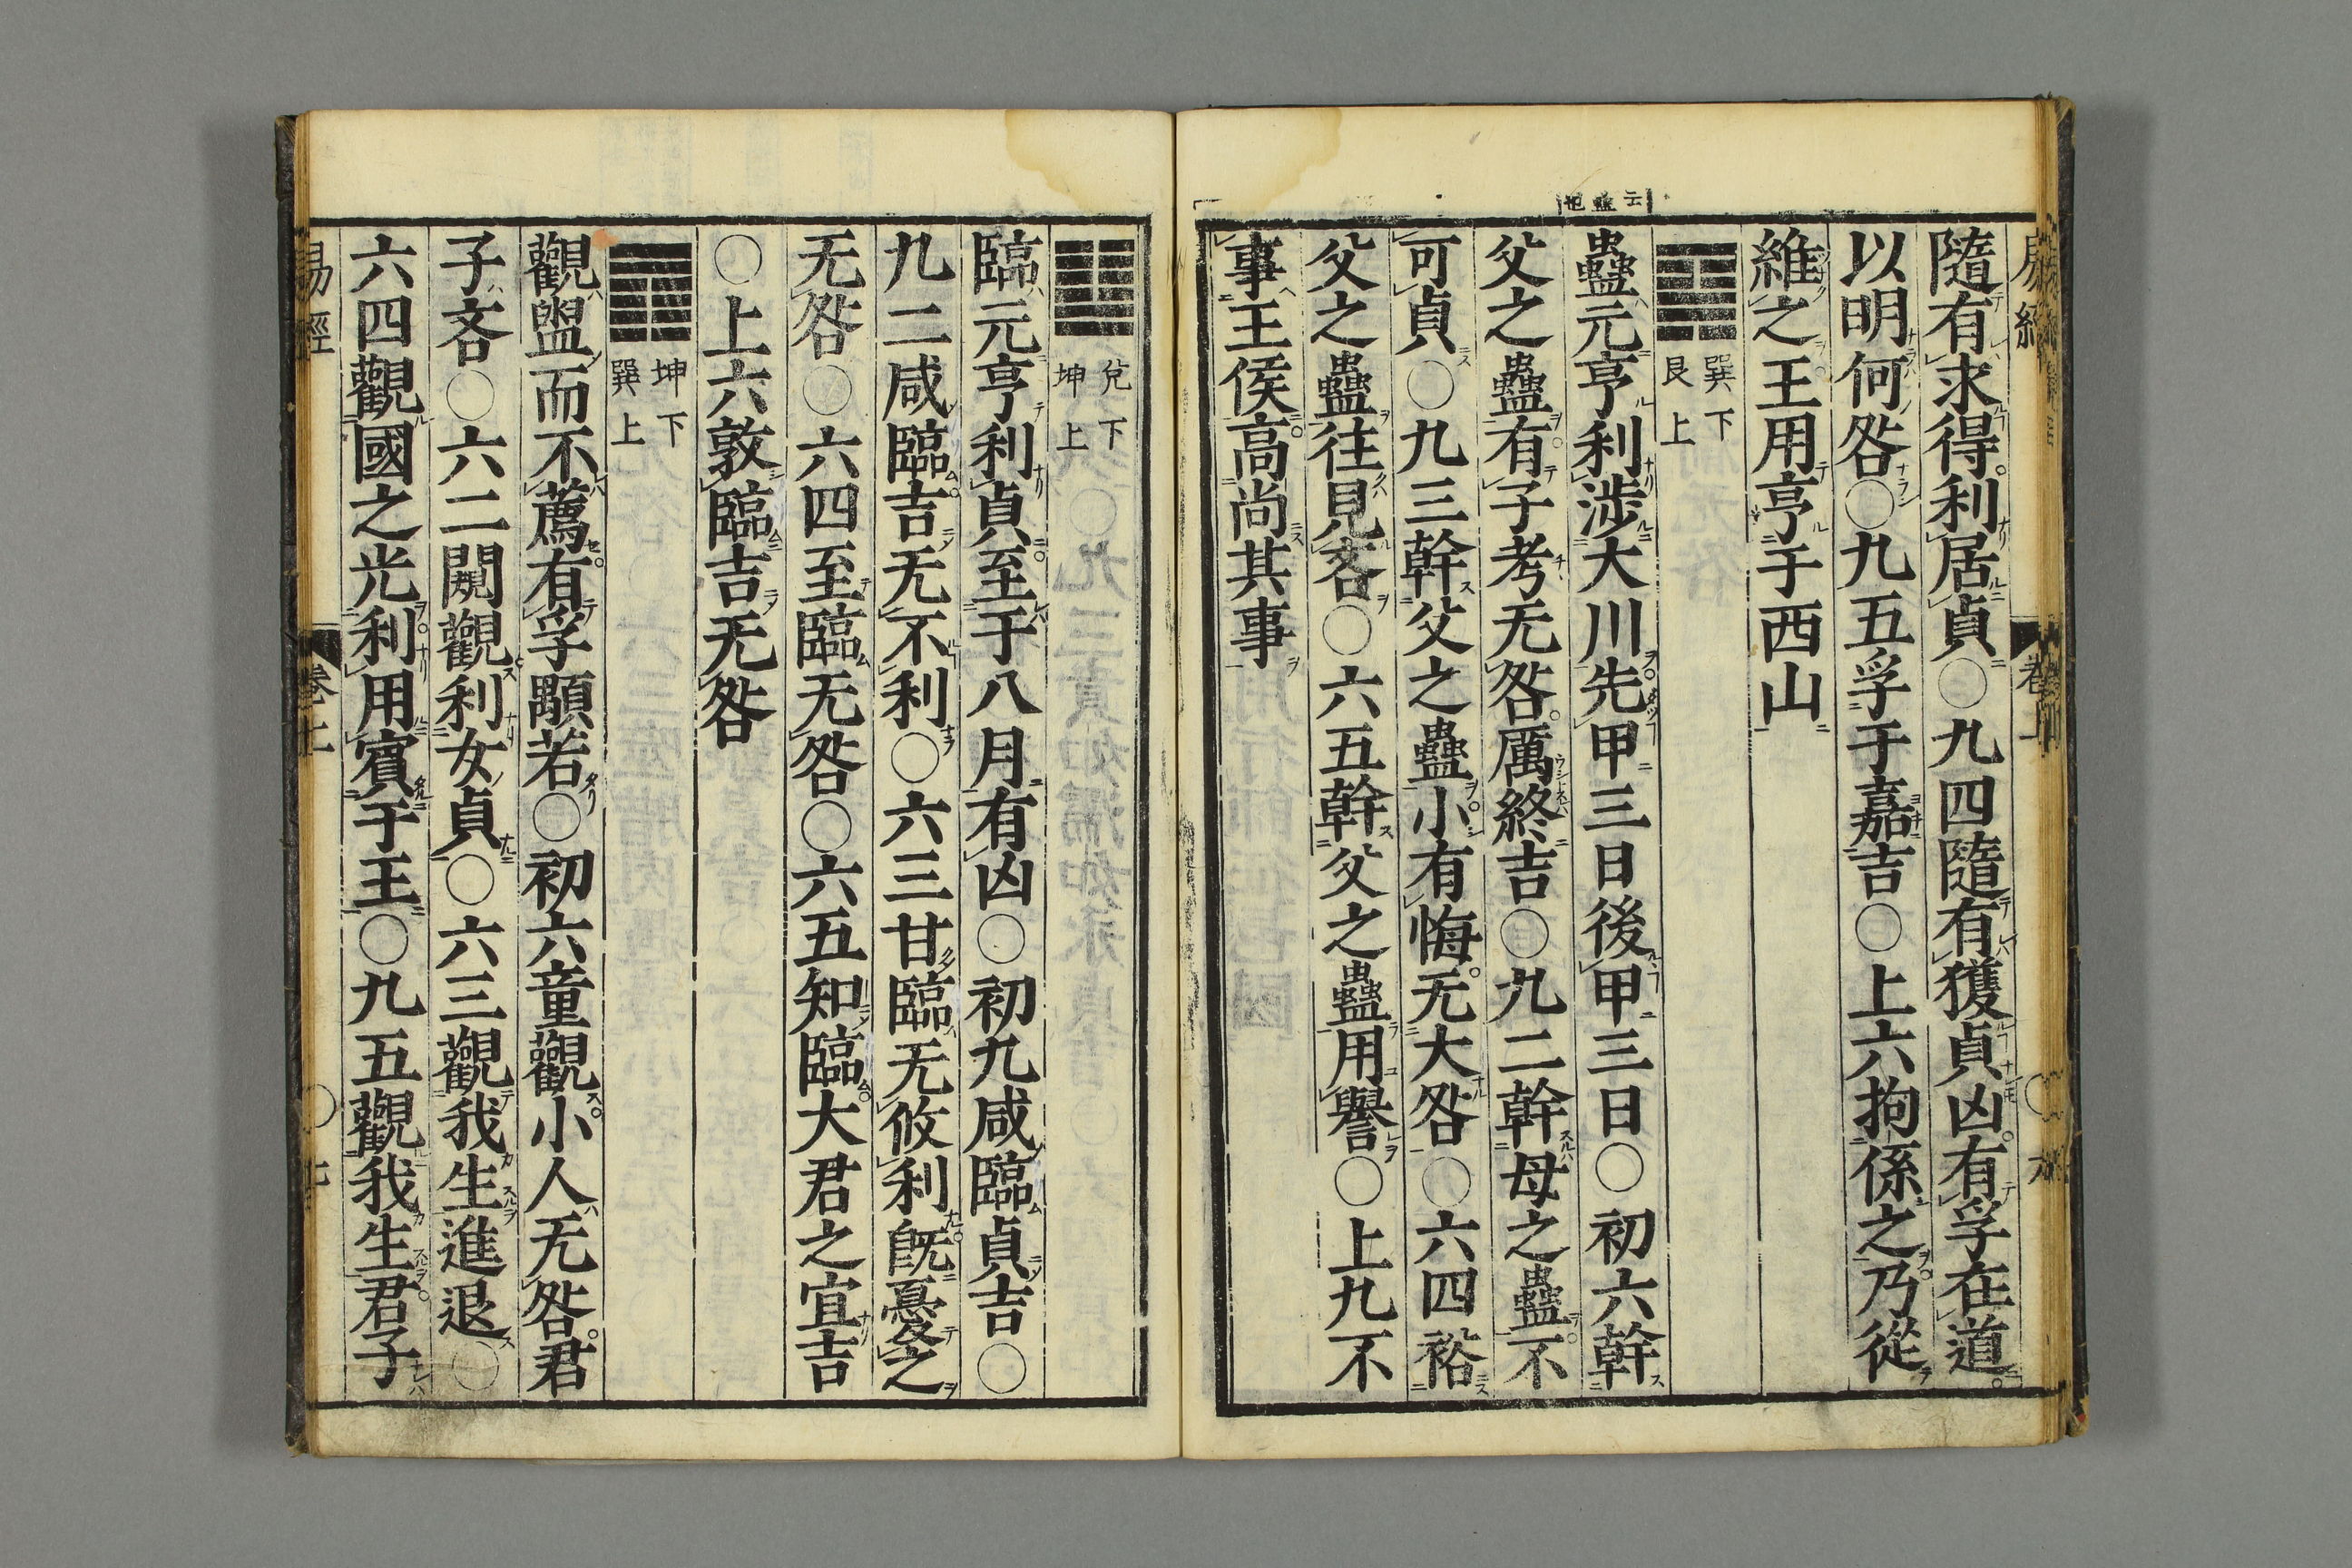 隨有求得利居貞〇九四隨有獲貞凶有孚在道
以明何咎〇九五孚于嘉吉〇上六拘係之乃從
維之王用亨于西山
巽下
艮上
蠱元亨利涉大川先甲三日後甲三日〇初六幹
父之蠱有子考无咎厲終吉〇九二幹母之蠱不
可貞〇九三幹父之蠱小有悔无大咎〇六四裕
父之蠱往見吝〇六五幹父之蠱用譽〇上九不
事王侯高尚其事
兌下
坤上
臨元亨利貞至于八月有凶〇初九咸臨貞吉〇
九二咸臨吉无不利〇六三甘臨无攸利旣憂之
无咎〇六四至臨无咎〇六五知臨大君之宜吉
〇上六敦臨吉无咎
坤下
巽上
觀盥而不薦有孚顒若〇初六童觀小人无咎君
子吝〇六二闚觀利女貞〇六三觀我生進退〇
六四觀國之光利用賓于王〇九五觀我生君子
易經 卷上